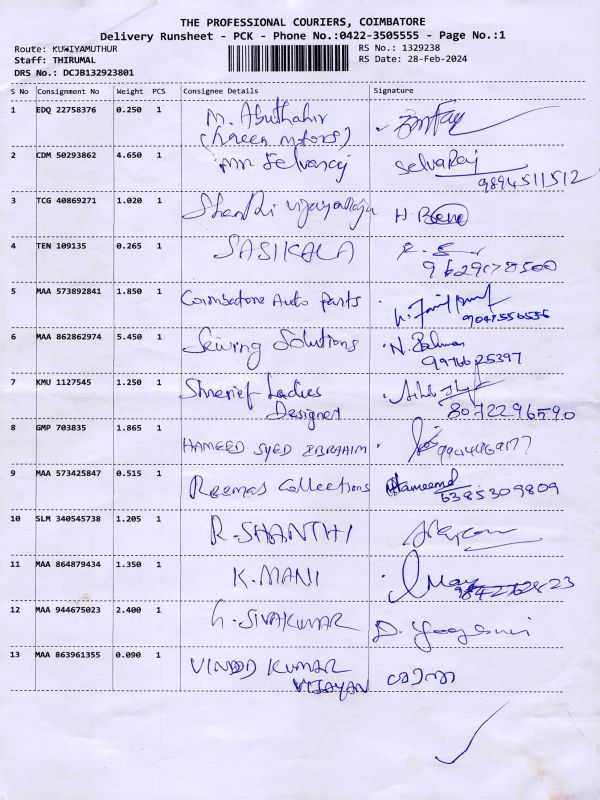 THE PROFESSIONAL COURIERS, COIMBATORE
Delivery Runsheet - PCK - Phone No.:0422-3505555 - Page No.:1
Route: KUNIYAMUTHUR
RS No.: 1329238
Staff: THIRUMAL
RS Date: 28-Feb-2024
DRS No.: DCJB132923801
S No Consignment No Weight PCS Consignee Details Signature
1 EDQ 22758376 0.250 1 M. Abuthahir
(Kareem motors)
2 CDM 50293862 4.650 1 Mr Selvaraj SelvaRaj
9894511512
3 TCG 40869271 1.020 1 Shanthi Vijayaraju H. Beena
4 TEN 109135 0.265 1 SASIKALA
9629178500
5 MAA 573892841 1.850 1 Coimbatore Auto parts
9047556556
6 MAA 862862974 5.450 1 Sewing Solutions N. Rahman
9976625397
7 KMU 1127545 1.250 1 Sherief Ladies
Designer
8072296590
8 GMP 703835 1.865 1 HAMEED SYED IBRAHIM 9944469177
9 MAA 573425847 0.515 1 Reemas Collections Hameemd
6385309809
10 SLM 340545738 1.205 1 R. SHANTHI
11 MAA 864879434 1.350 1 K. MANI
12 MAA 944675023 2.400 1 G. SIVAKUMAR D. Yogeswari
13 MAA 863961355 0.090 1 VINOD KUMAR
VIJAYAN